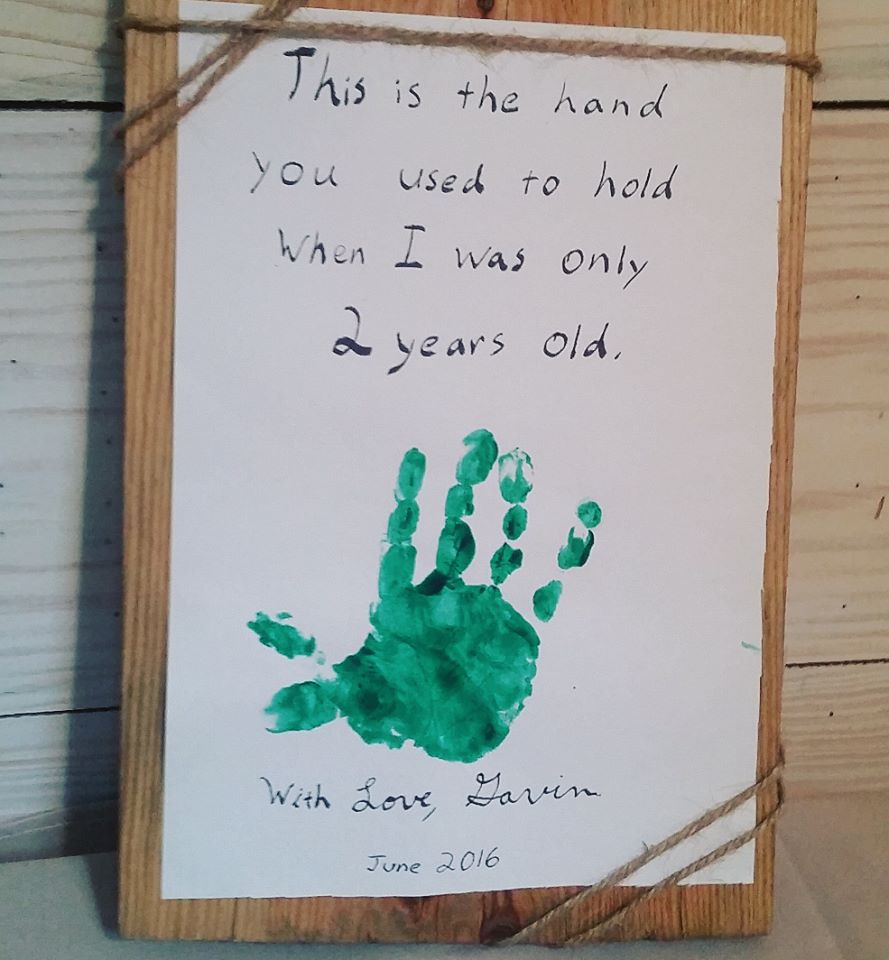 This is the hand
you used to hold
When I was only
2 years old.
With Love, Gavin
June 2016